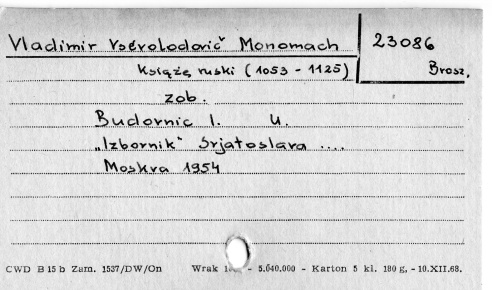 Vladimir Vsévolodovič Monomach
23086
książę ruski (1053 - 1125)
Brosz.
zob.
Budovnic I. U.
„Izbornik" Svjatoslava ....
Moskva 1954
CWD B 15 b Zam. 1537/DW/On Wrak - 5.040.000 - Karton 5 kl. 180 g, - 10.XII.68.